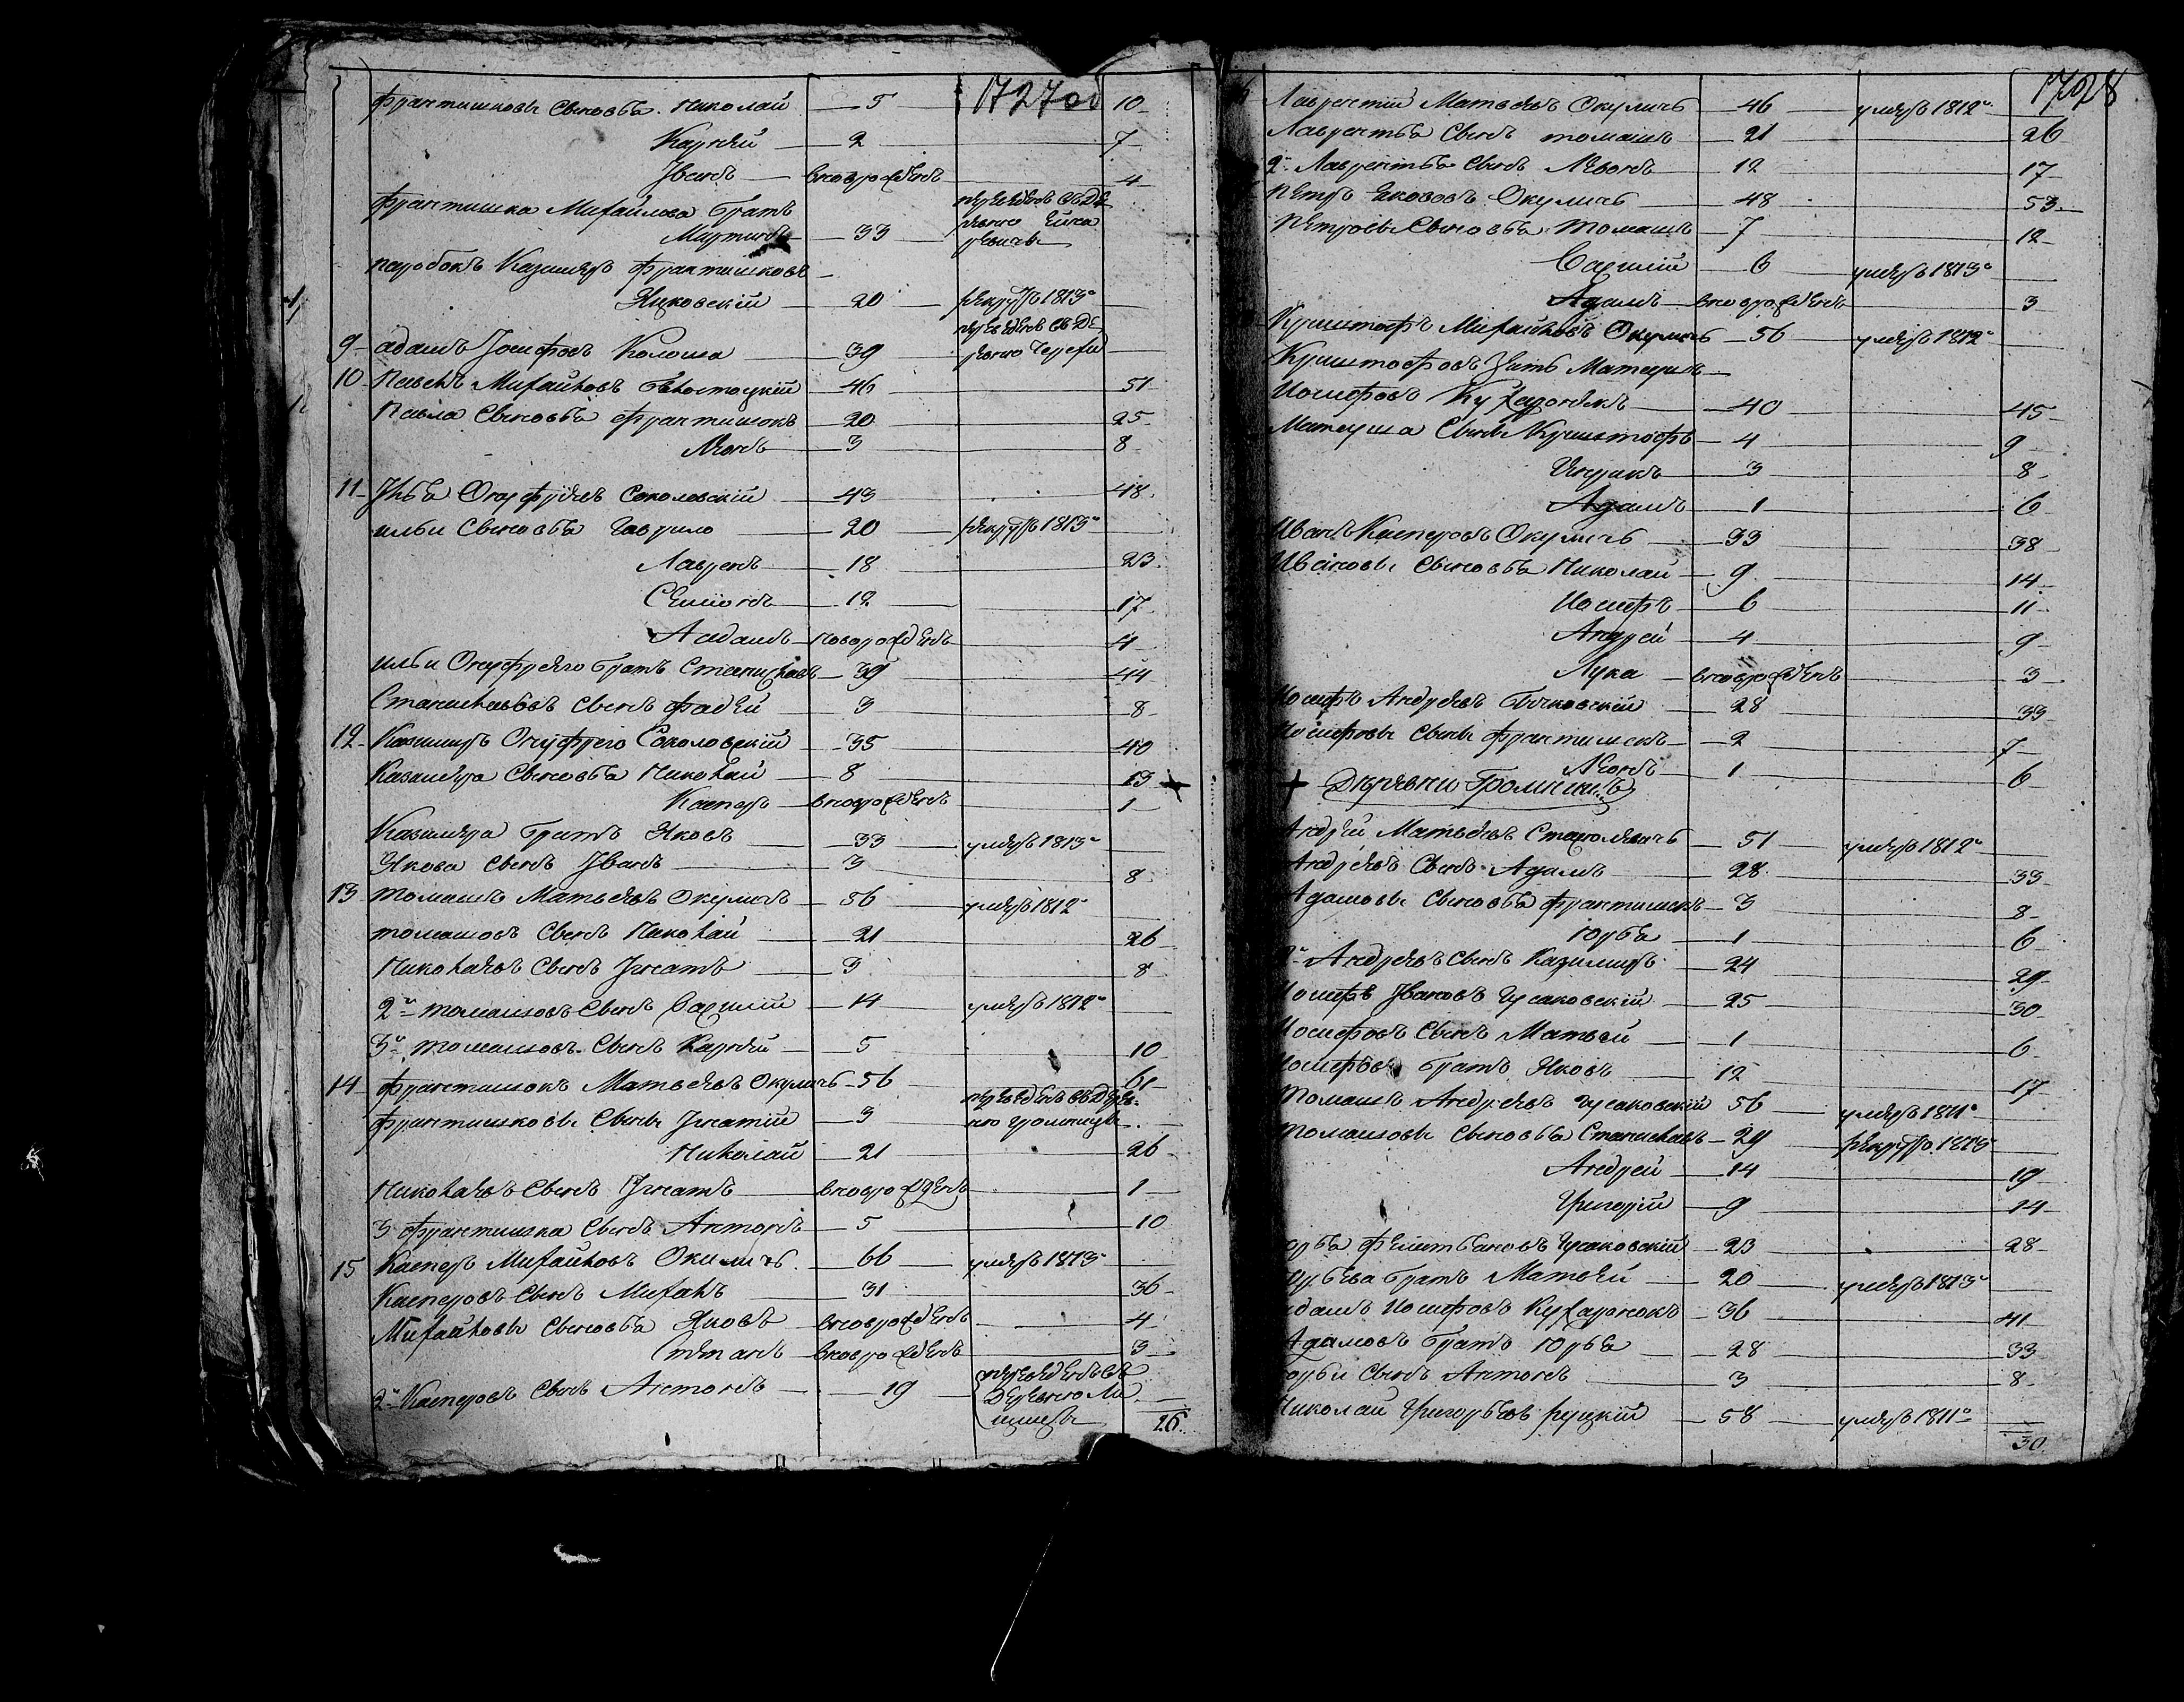 1727об
Франтишковы Сыновья Николай — 5 10
Карней — 2 7
Иванъ — вновьрожденъ 4
Франтишка Михайлова братъ переведенъ въ де
Мартинъ — 33 ревню
ревичи
паробокъ Казимеръ Франтишковъ
Янковскій — 20 рекрутъ 1813о
переведенъ въ де
9 Адамъ Іосифовъ Колоша — 39 ревню
10 Павелъ Михайловъ — 46 51
Павла Сыновья Франтишокъ 20 25
Леонъ 3 8
11 Илья Онуфріевъ Соколовскій — 43 48
ильи Сыновья Гаврило — 20 рекрутъ 1813о
Лавренъ — 18 23
Семіонъ — 12 17
Адамъ — новорожденъ 4
ильи Онуфріево братъ Станиславъ — 39 44
Станиславовъ Сынъ Фадей 3 8
12 Казимиръ Онуфріевъ Соколовскій — 35 40
Казимера Сыновья Николай — 8 13
Каспер — вновьрожденъ 1
Казимера братъ Яковъ 33 умеръ 1813о
Якова Сынъ Иванъ 3 8
13 Томашъ Матвеевъ Окуличъ — 56 умеръ 1812о
томашовъ Сынъ Николай — 21 26
Николаевъ Сынъ Игнатъ — 3 8
2й томашовъ Сынъ Василій — 14 умеръ 1812о
3й томашовъ Сынъ Карней — 5 10
14 Франтишокъ Матвеевъ Окуличъ — 56 61
переведенъ въ дерев
Франтишковы Сыны Игнатій — 3 ню громницы
Николай 21 26
Николаевъ Сынъ Игнатъ — вновьрожденъ 1
3 Франтишка Сынъ Антонъ — 5 10
15 Каспер Михайловъ Окуличъ — 66 умеръ 1813о
Касперовъ Сынъ Михалъ — 31 36
Михайловы Сыновья Яковъ — вновьрожденъ 4
Степанъ — вновьрожденъ 3
переведенъ въ
2й Касперовъ Сынъ Антонъ — 19 деревню
26

1728
Лаврентій Матвеевъ Окуличъ — 46 умеръ 1812о
Лаврентья Сынъ томашъ — 21 26
2й Лаврентья Сынъ Леонъ — 12 17
Петръ Яковов Окуличъ — 48 53
Петровы Сыновья Томашъ — 7 12
Василій — 6 умеръ 1813о
Адамъ — вновьрожденъ 3
Криштофъ Михайловъ Окуличъ — 56 умеръ 1812о
Криштофовъ Зять Матеушъ
Иосифовъ Кухаронокъ — 40 45
Матеуша Сыны Криштофъ — 4 9
3 8
Адамъ 1 6
Иванъ Касперовъ Окуличъ — 33 38
Ивановы Сыновья Николай — 9 14
Иосифъ — 6 11
Андрей — 4 9
Лука — вновьрожденъ 3
Иосифъ Андреевъ — 28 33
Иосифовы Сыны Франтишекъ — 2 7
Леонъ 1 6
Деревни Громницъ
Андрей Матвеевъ — 51 умеръ 1812о
Андреевъ Сынъ Адамъ — 28 33
Адамовы Сыновья Франтишекъ — 3 8
Юрья — 1 6
2й Андреевъ Сынъ Казимиръ — 24 29
Иосифъ Ивановъ Гусаковскій — 25 30
Иосифовъ Сынъ Матвей — 1 6
Иосифовъ братъ Яковъ — 12 17
Томашъ Андреевъ Гусаковскій 56 умеръ 1811о
Томашовы Сыновья Станиславъ — 29 рекрутъ 1813
Андрей — 14 19
Григорій — 9 14
Гусаковскій — 23 28
братъ Матвей — 20 умеръ 1813о
Адамъ Иосифовъ Кухаронокъ — 36 41
Адамовъ братъ Юрья — 28 33
Юрьи Сынъ Антонъ 3 8
Николай Григорьев Руцкій — 58 умеръ 1811о
30